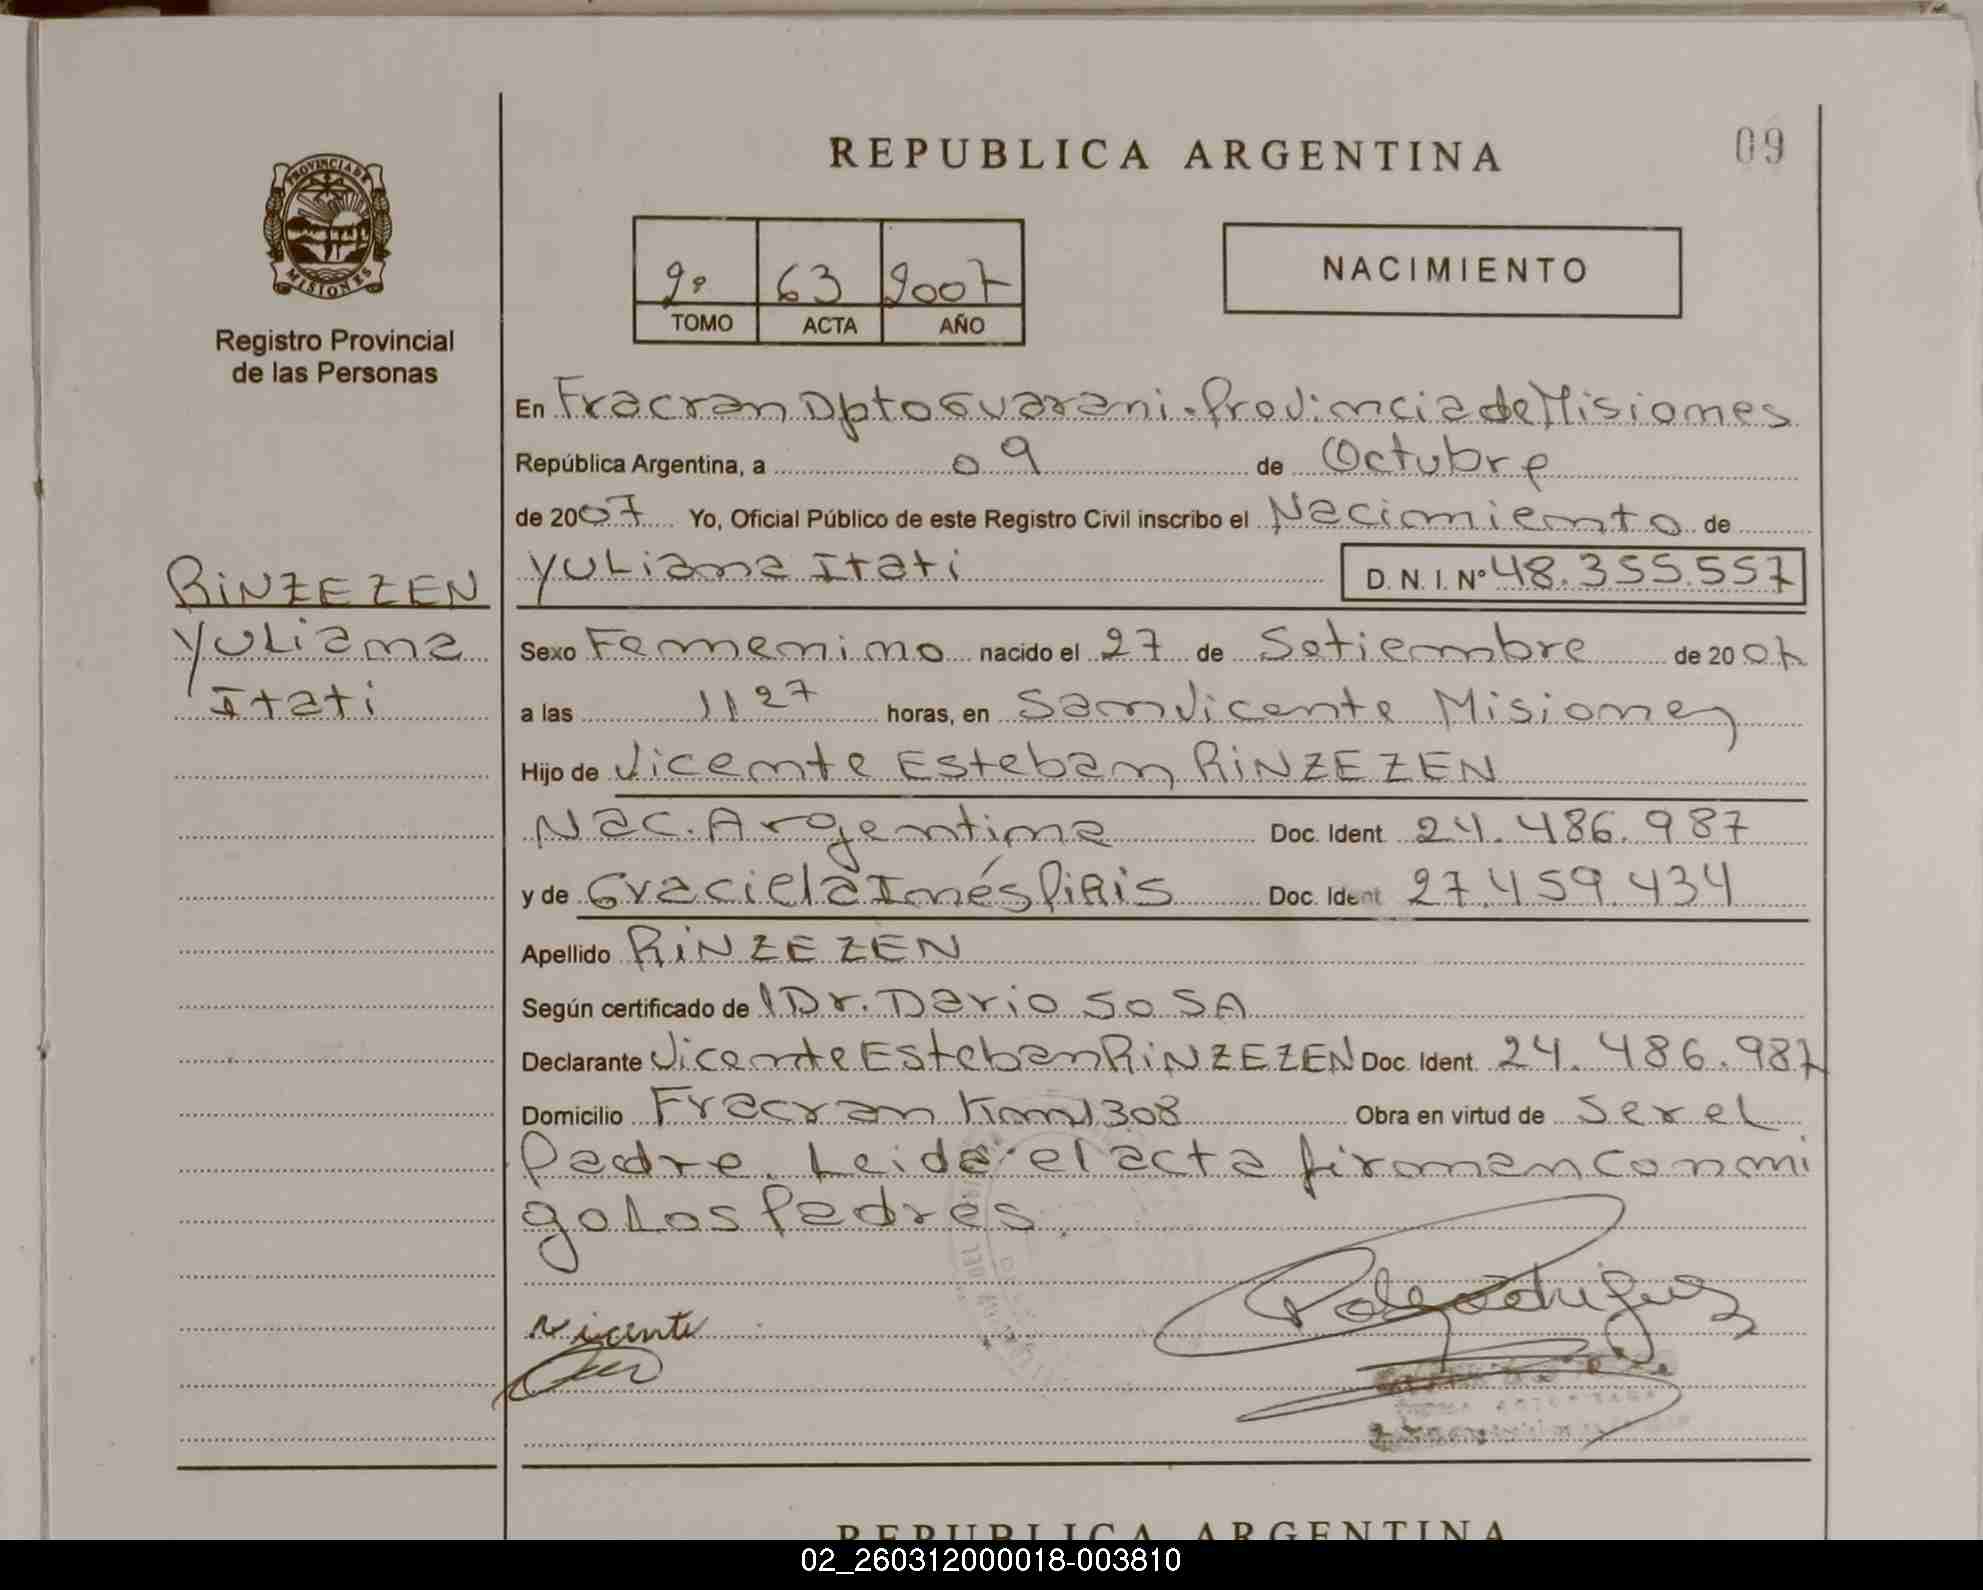 REPUBLICA ARGENTINA
09
PROVINCIA DE
MISIONES
Registro Provincial
de las Personas
2º 63 2007
TOMO ACTA AÑO
NACIMIENTO
En Fracran Dpto Guarani. Provincia de Misiones
República Argentina, a 09 de Octubre
de 2007 Yo, Oficial Público de este Registro Civil inscribo el Nacimiento de
RiNZEZEN
Yuliana
Itati
Yuliana Itati D.N.I. Nº 48.355.557
Sexo Femenino nacido el 27 de Setiembre de 2007
a las 11 27 horas, en San Vicente Misiones
Hijo de Vicente Esteban RiNZEZEN
Nac. Argentina Doc. Ident 24.486.987
y de Graciela Inés PiRiS Doc. Ident 27.459.434
Apellido RiNZEZEN
Según certificado de l Dr. Dario SOSA
Declarante Vicente Esteban RiNZEZEN Doc. Ident. 24.486.987
Domicilio Fracran Km 1308 Obra en virtud de Ser el
Padre. Leida el acta firman conmi
go Los Padres.
Vicente
REPUBLICA ARGENTINA
02_260312000018-003810